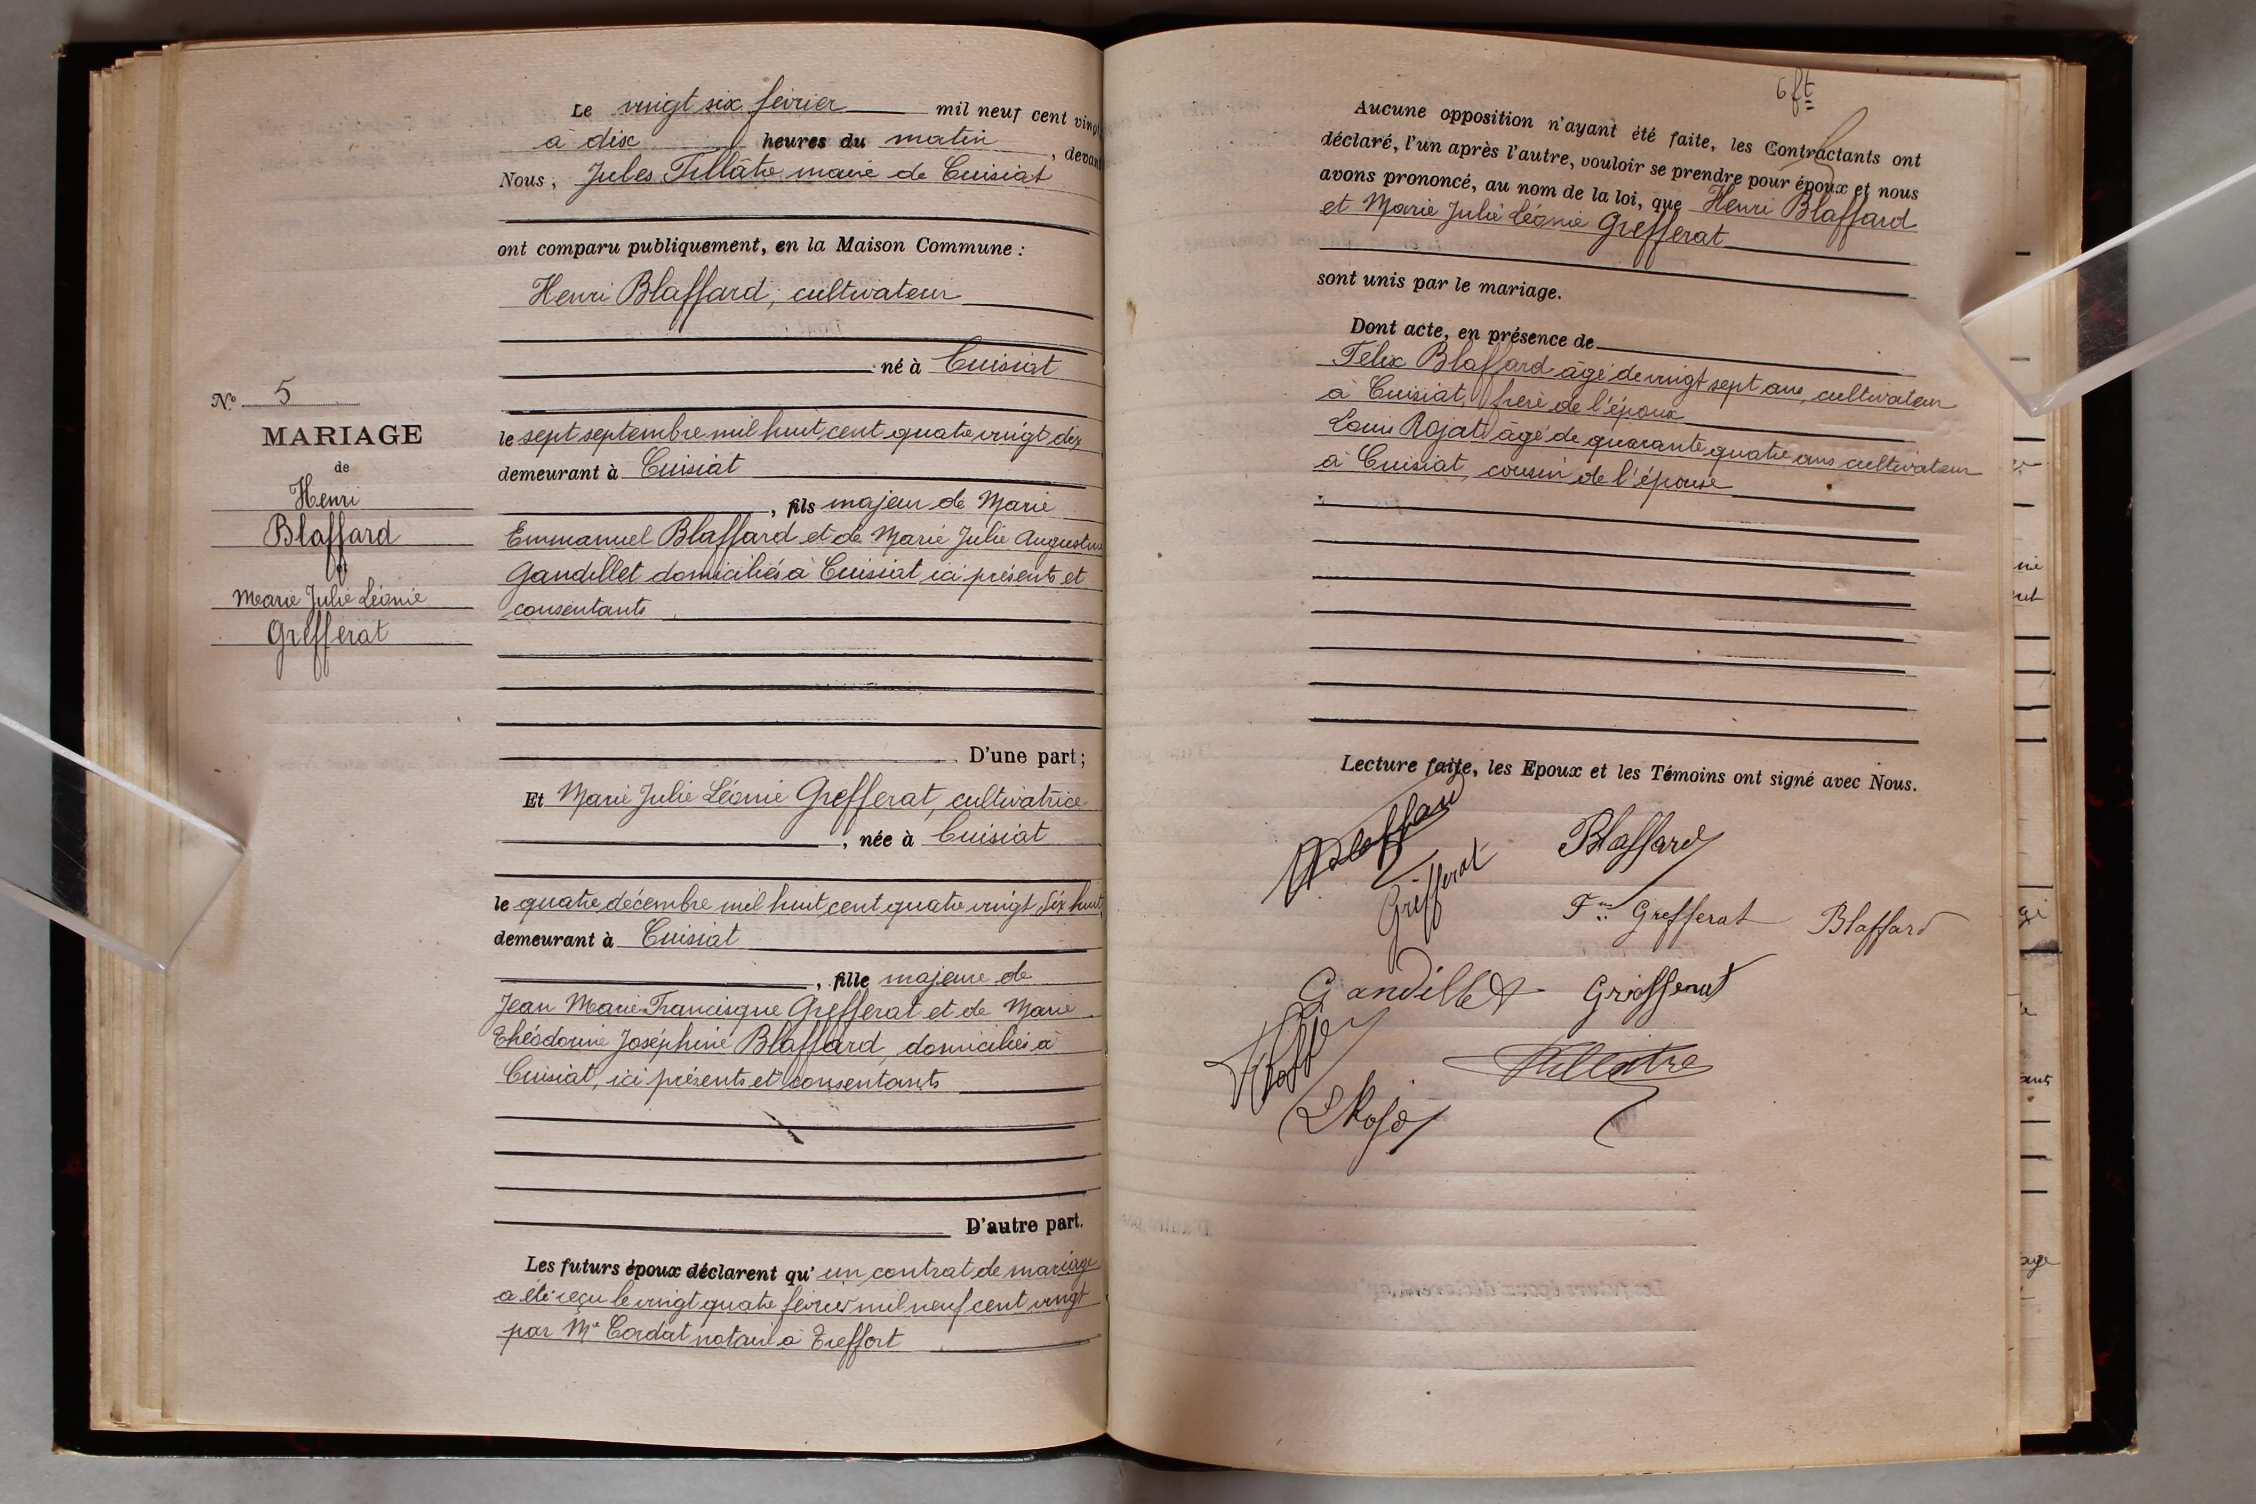 Le vingt six février mil neuf cent vingt
à dix heures du matin, devant
Nous, Jules Tillâtre maire de Cuisiat
ont comparu publiquement, en la Maison Commune :
Henri Blaffard, cultivateur
né à Cuisiat
le sept septembre mil huit cent quatre vingt dix
demeurant à Cuisiat
, fils majeur de Marie
Emmanuel Blaffard et de Marie Julie Augustine
Gandillet domiciliés à Cuisiat ici présents et
consentants
D'une part ;
Et Marie Julie Léonie Grefferat, cultivatrice
, née à Cuisiat
le quatre décembre mil huit cent quatre vingt dix huit,
demeurant à Cuisiat
, fille majeure de
Jean Marie Francisque Grefferat et de Marie
Théodorine Joséphine Blaffard, domiciliés à
Cuisiat, ici présents et consentants
D'autre part.
Les futurs époux déclarent qu'un contrat de mariage
a été reçu le vingt quatre février mil neuf cent vingt
par Me Cordat notaire à Treffort
No 5
MARIAGE
de
Henri
Blaffard
&
Marie Julie Léonie
Grefferat
6 ft
Aucune opposition n'ayant été faite, les Contractants ont
déclaré, l'un après l'autre, vouloir se prendre pour époux et nous
avons prononcé, au nom de la loi, que Henri Blaffard
et Marie Julie Léonie Grefferat
sont unis par le mariage.
Dont acte, en présence de
Félix Blaffard âgé de vingt sept ans, cultivateur
à Cuisiat, frère de l'époux
Louis Rojat âgé de quarante quatre ans cultivateur
à Cuisiat, cousin de l'épouse
Lecture faite, les Epoux et les Témoins ont signé avec Nous.
Blaffard
Blaffard
Grefferat
Grefferat Blaffard
Gandillet Grefferat
Tillatre
L Rojat